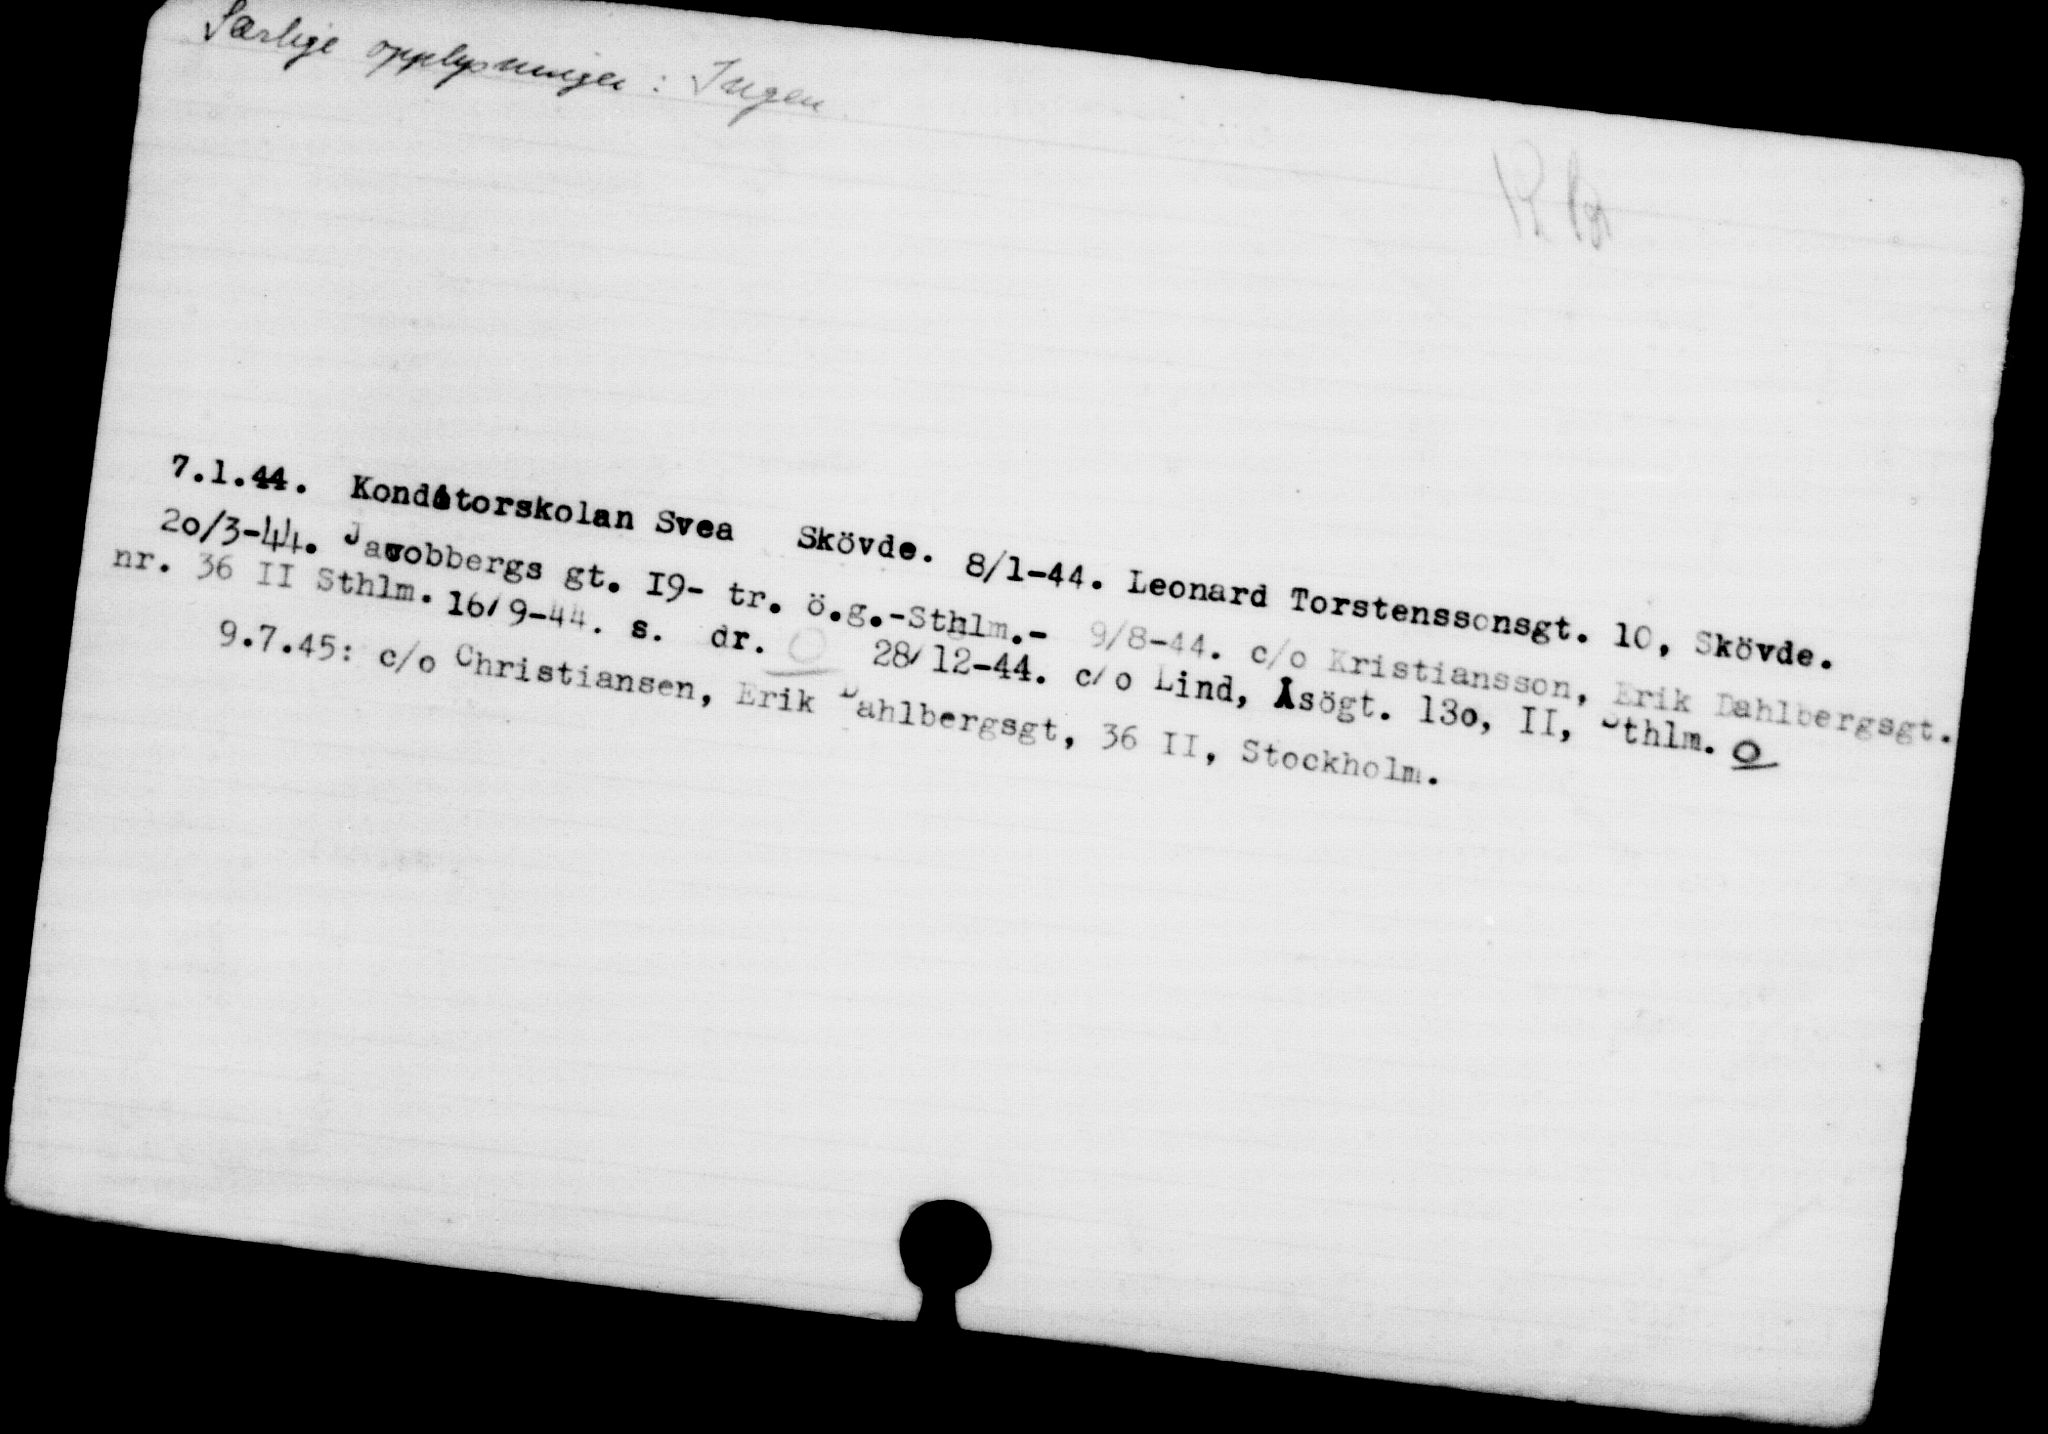 Særlige opplysninger: Ingen.
7.1.44. Konditorskolan Svea Skövde. 8/1-44. Leonard Torstenssonsgt. 10, Skövde.
20/3-44. Jacobbergs gt. I9- tr. ö.g.-Sthlm.- 9/8-44. c/o Kristiansson, Erik Dahlbergsgt.
nr. 36 II Sthlm. 16/9-44. s. dr. O 28/12-44. c/o Lind, Åsögt. 13o, II, Sthlm. O
9.7.45: c/o Christiansen, Erik Dahlbergsgt, 36 II, Stockholm.